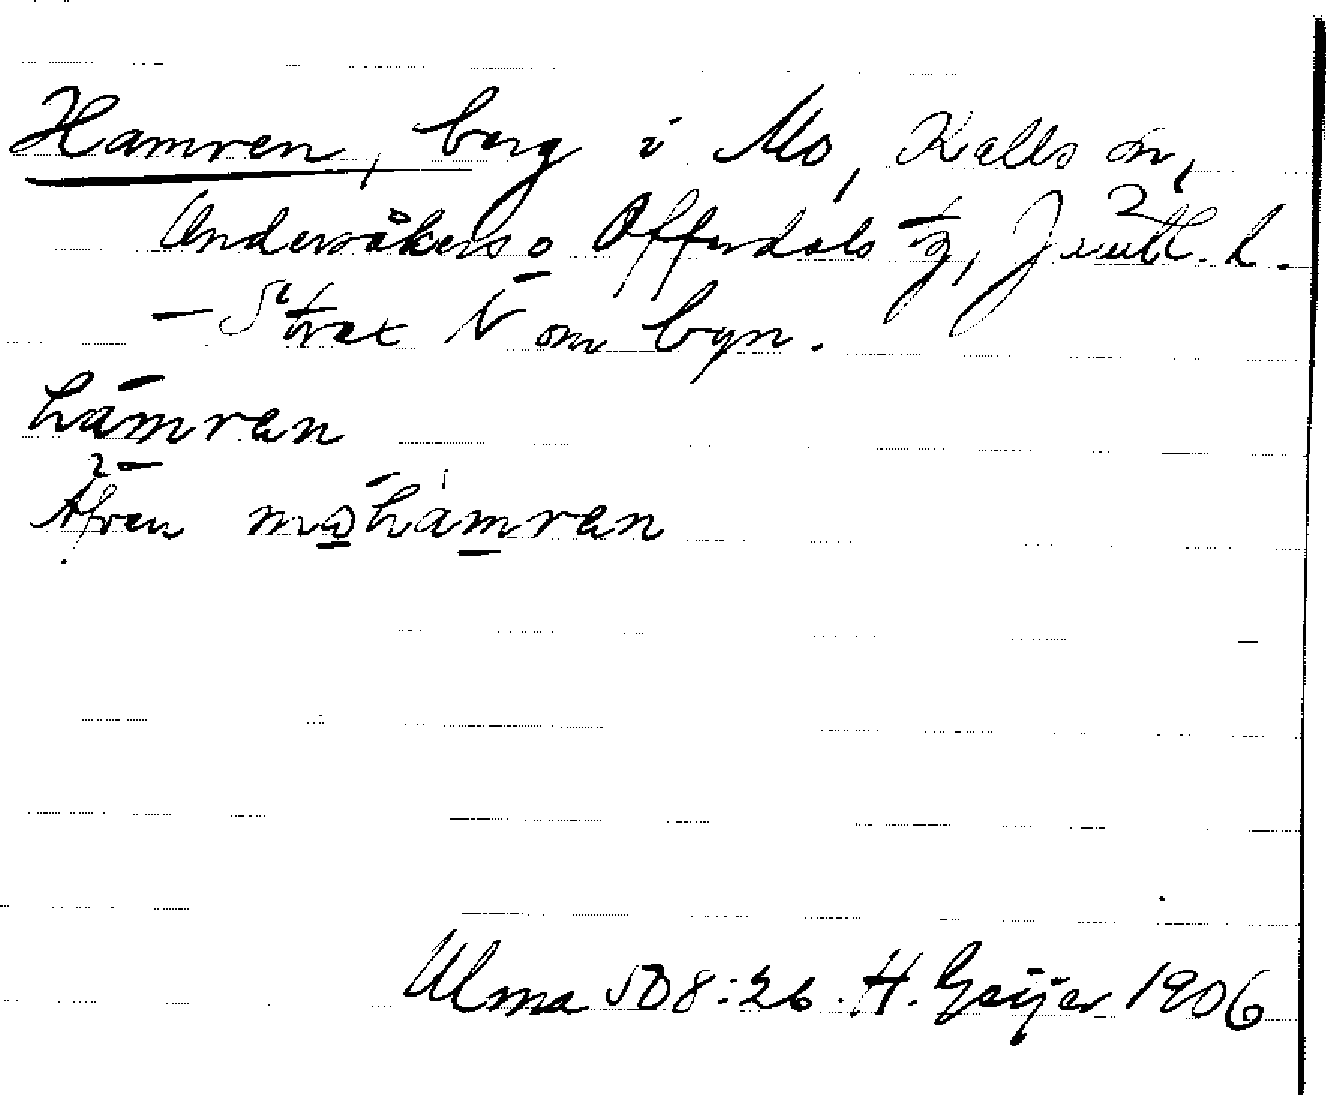 Hamren, berg i Mo, Kalls sn,
Undersåkers o Offerdals tg, Jmtl. l.
— Strax N om byn.
hamran
Äfven mohamran
Ulma 508:26. H. Geijer 1906